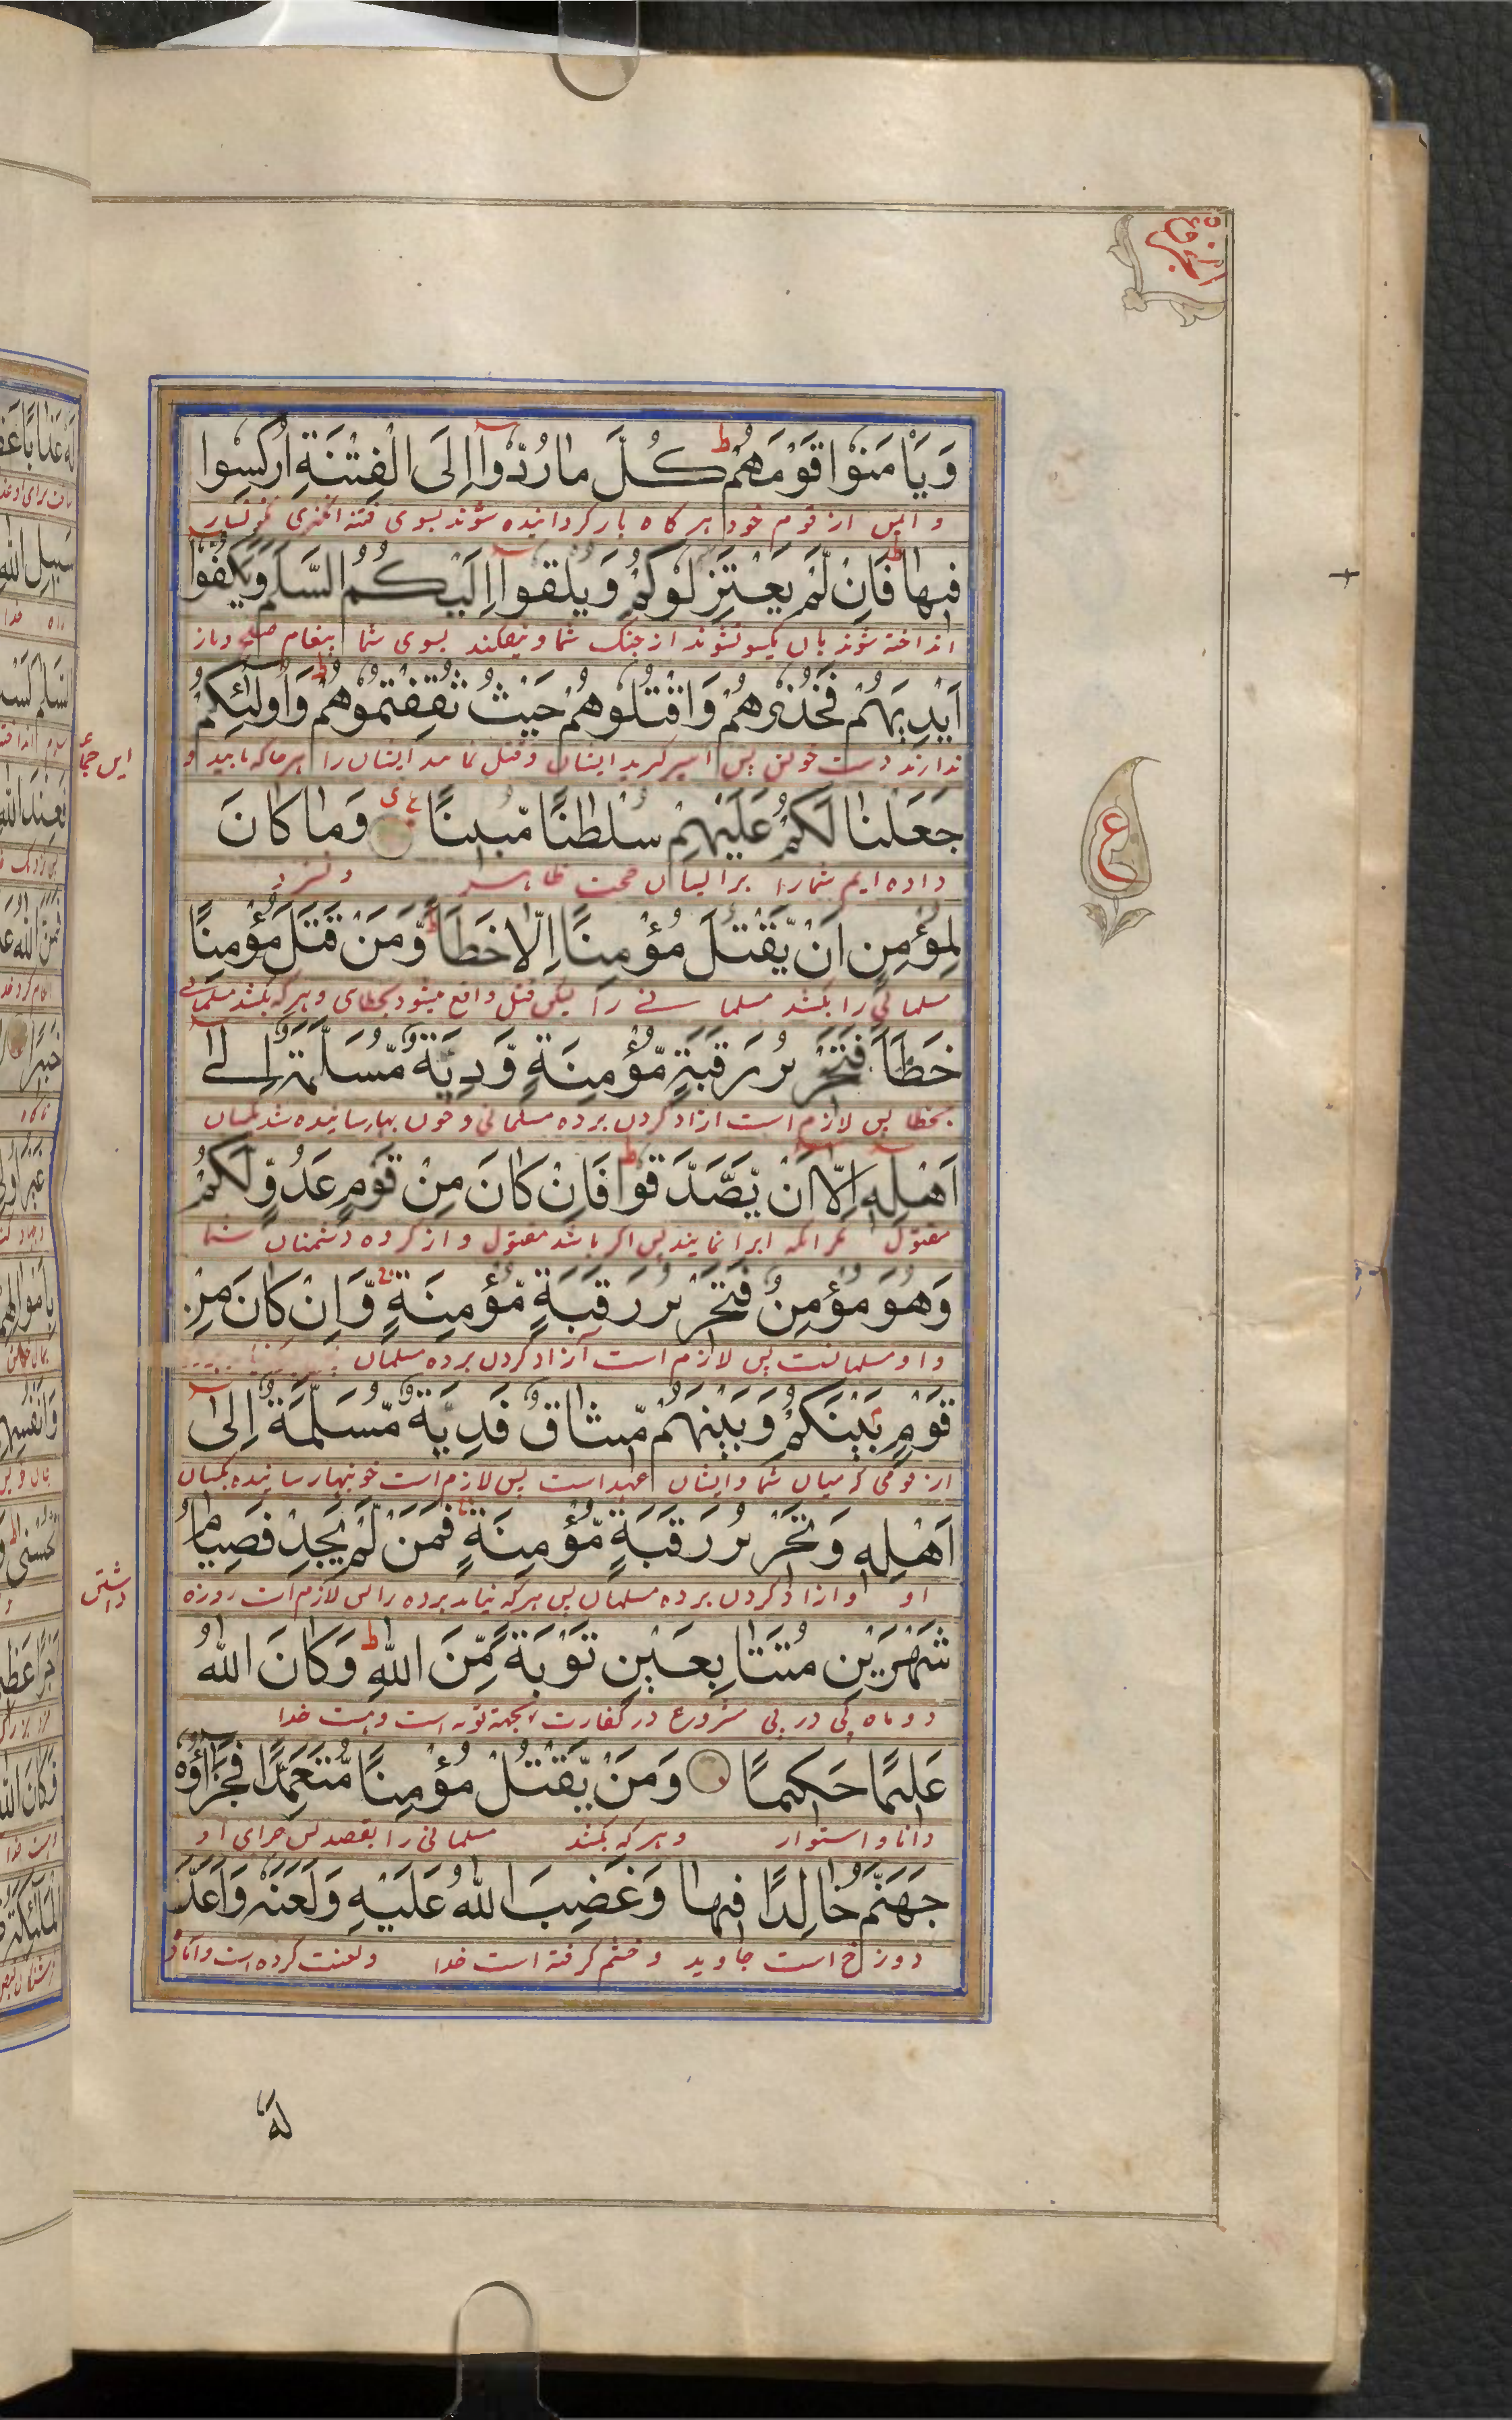 الجزء الخامس
وَيَأْمَنُوا قَوْمَهُمْ ط كُلَّ مَا رُدُّوا إِلَى الْفِتْنَةِ أُرْكِسُوا
و ایمن از قوم خود هر گاه باز گردانیده شوند بسوی فتنه انگیزی نگونسار
فِيهَا ط فَإِنْ لَّمْ يَعْتَزِلُوكُمْ وَيُلْقُوا إِلَيْكُمُ السَّلَمَ وَيَكُفُّوا
انداخته شوند بان یکسو نشوند از جنک شما و نیفکنند بسوی شما پیغام صلح و باز
أَيْدِيَهُمْ فَخُذُوهُمْ وَاقْتُلُوهُمْ حَيْثُ ثَقِفْتُمُوهُمْ ط وَأُولَٰئِكُمْ
ندارند دست خویش پس اسیر گیرید ایشان و قتل نمایید ایشان را هر جا که یابید و
این جماعه
جَعَلْنَا لَكُمْ عَلَيْهِمْ سُلْطَٰنًا مُّبِينًا ع وَمَا كَانَ
داده ایم شما را بر ایشان حجت ظاهر و نسزد
ع
لِمُؤْمِنٍ أَنْ يَّقْتُلَ مُؤْمِنًا إِلَّا خَطَأً ط وَّمَنْ قَتَلَ مُؤْمِنًا
مسلمانی را بکشد مسلمانے را لیکن قتل واقع میشود بخطای و هر که بکشد مسلمانے
خَطَأً فَتَحْرِيرُ رَقَبَةٍ مُّؤْمِنَةٍ وَّدِيَةٌ مُّسَلَّمَةٌ إِلَىٰ
بخطا پس لازم است ازاد کردن برده مسلمانی و خون بها رسانیده شد بکسان
أَهْلِهِ إِلَّا أَنْ يَّصَّدَّقُوا ط فَإِنْ كَانَ مِنْ قَوْمٍ عَدُوٍّ لَّكُمْ
مقتول مگر انکه ابرا نمایند پس اگر باشد مقتول و از گروه دشمنان شما
وَهُوَ مُؤْمِنٌ فَتَحْرِيرُ رَقَبَةٍ مُّؤْمِنَةٍ ط وَّإِنْ كَانَ مِنْ
و او مسلمانست پس لازم است آزاد کردن برده مسلمان
قَوْمٍ بَيْنَكُمْ وَبَيْنَهُمْ مِّيثَاقٌ فَدِيَةٌ مُّسَلَّمَةٌ إِلَىٰ
از قومی که میان شما و ایشان عهد است پس لازم است خونبها رسانیده بکسان
أَهْلِهِ وَتَحْرِيرُ رَقَبَةٍ مُّؤْمِنَةٍ فَمَنْ لَّمْ يَجِدْ فَصِيَامُ
او و ازاد کردن برده مسلمان پس هر که نیابد برده را پس لازم است روزه
داشتن
شَهْرَيْنِ مُتَتَابِعَيْنِ تَوْبَةً مِّنَ اللَّهِ ط وَكَانَ اللَّهُ
دو ماه پی در پی مشروع در کفارت بجهة توبه است و هست خدا
عَلِيمًا حَكِيمًا وَمَنْ يَّقْتُلْ مُؤْمِنًا مُّتَعَمِّدًا فَجَزَاؤُهُ
دانا و استوار و هر که بکشد مسلمانی را بقصد پس جزای او
جَهَنَّمُ خَالِدًا فِيهَا وَغَضِبَ اللَّهُ عَلَيْهِ وَلَعَنَهُ وَأَعَدَّ
دوزخ است جاوید و خشم گرفته است خدا و لعنت کرده است و آماده
لَهُ